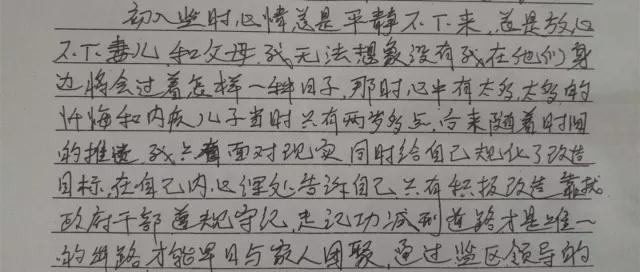 初入监时心情总是平静不下来,总是放心
不下妻儿和父母,我无法想象没有我在他们身
边将会过着怎样一种日子,那时心中有太多,太多的
忏悔和内疚儿子当时只有两岁多点,后来随着时间
的推迻我只有面对现实,同时给自己规化了改造
目标,在自己内心深处告诉自己只有积极改造靠拢
政府干部遵规守纪,走记功减刑道路才是唯一
的出路才能早日与家人团聚,通过监区领导的